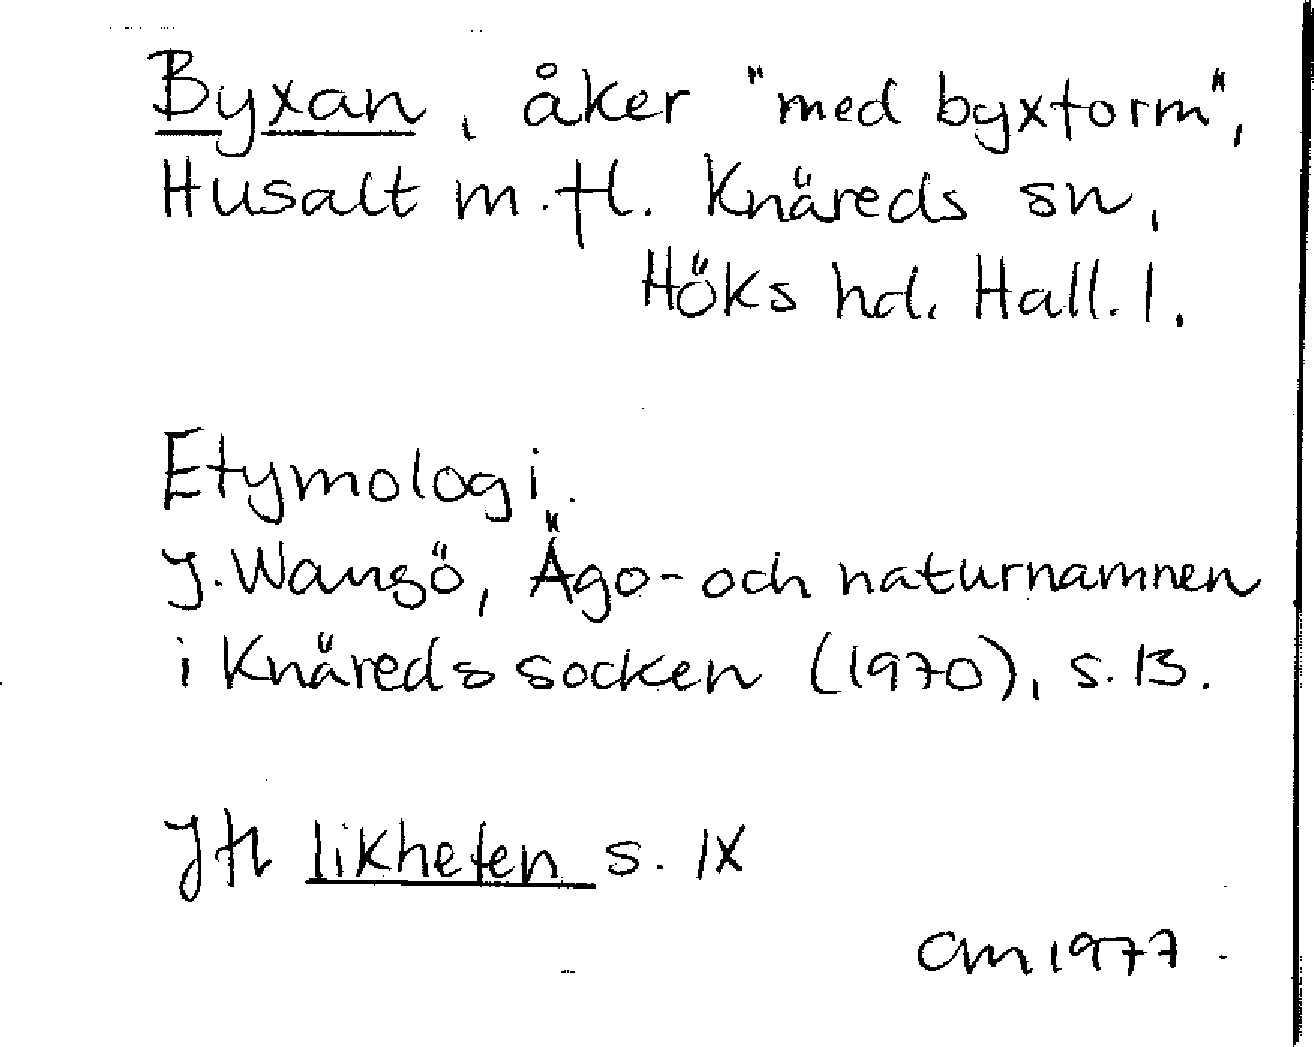 Byxan, åker "med byxform",
Husalt m.fl. Knäreds sn,
Höks hd. Hall. l.
Etymologi.
J. Wangö, Ägo- och naturnamnen
i Knäreds socken (1970), s. 13.
Jfr likheten s. IX
CM 1977.